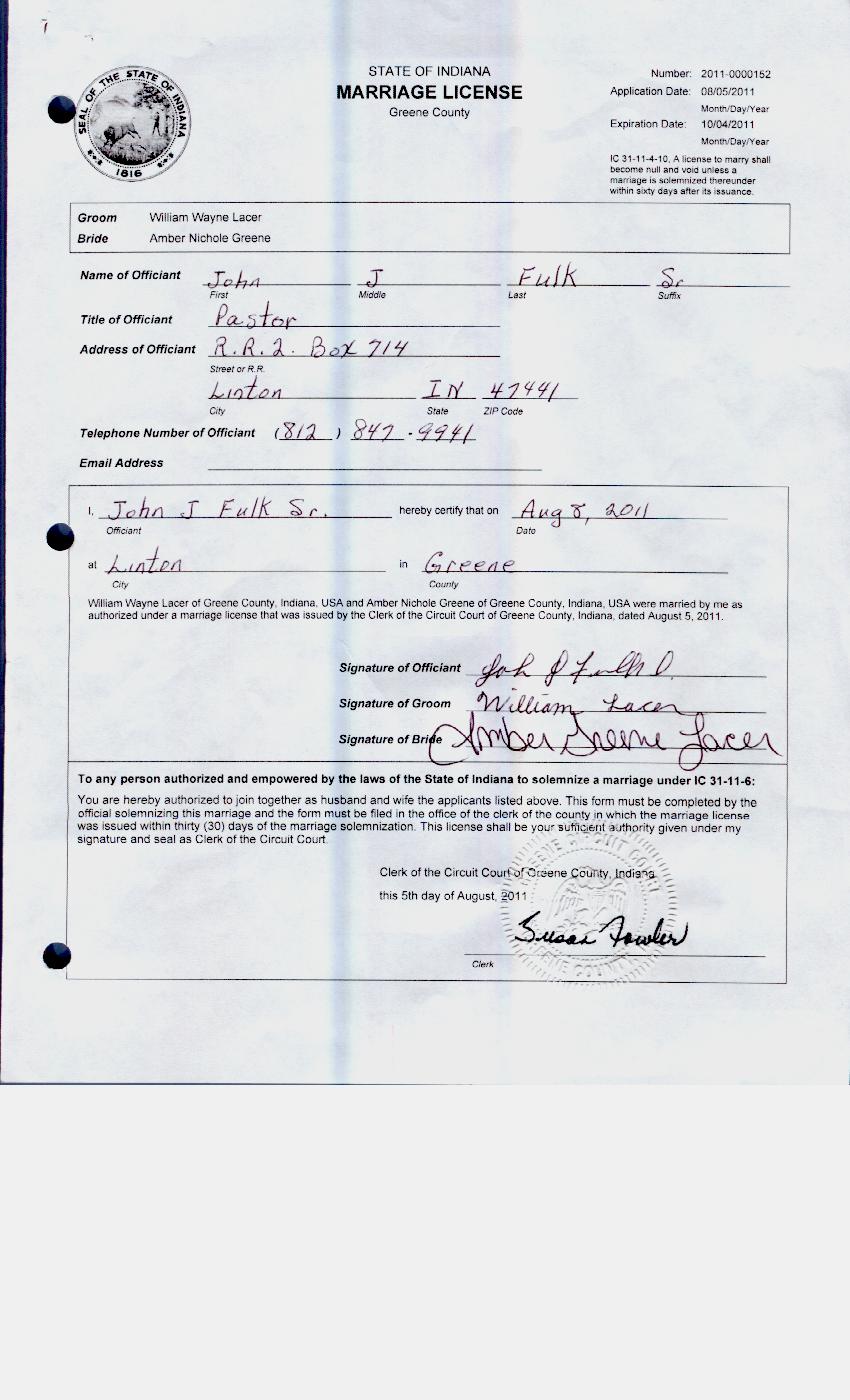 SEAL OF THE STATE OF INDIANA
1816
STATE OF INDIANA
MARRIAGE LICENSE
Greene County
Number: 2011-0000152
Application Date: 08/05/2011
Month/Day/Year
Expiration Date: 10/04/2011
Month/Day/Year
IC 31-11-4-10, A license to marry shall
become null and void unless a
marriage is solemnized thereunder
within sixty days after its issuance.
Groom William Wayne Lacer
Bride Amber Nichole Greene
Name of Officiant John J Fulk Sr
First Middle Last Suffix
Title of Officiant Pastor
Address of Officiant R.R.2. Box 714
Street or R.R.
Linton IN 47441
City State ZIP Code
Telephone Number of Officiant (812) 847-9941
Email Address
I, John J Fulk Sr. hereby certify that on Aug 8, 2011
Officiant Date
at Linton in Greene
City County
William Wayne Lacer of Greene County, Indiana, USA and Amber Nichole Greene of Greene County, Indiana, USA were married by me as
authorized under a marriage license that was issued by the Clerk of the Circuit Court of Greene County, Indiana, dated August 5, 2011.
Signature of Officiant John J Fulk
Signature of Groom William Lacer
Signature of Bride Amber Greene Lacer
To any person authorized and empowered by the laws of the State of Indiana to solemnize a marriage under IC 31-11-6:
You are hereby authorized to join together as husband and wife the applicants listed above. This form must be completed by the
official solemnizing this marriage and the form must be filed in the office of the clerk of the county in which the marriage license
was issued within thirty (30) days of the marriage solemnization. This license shall be your sufficient authority given under my
signature and seal as Clerk of the Circuit Court.
Clerk of the Circuit Court of Greene County, Indiana
this 5th day of August, 2011
Susan Fowler
Clerk
GREENE CIRCUIT COURT
GREENE COUNTY